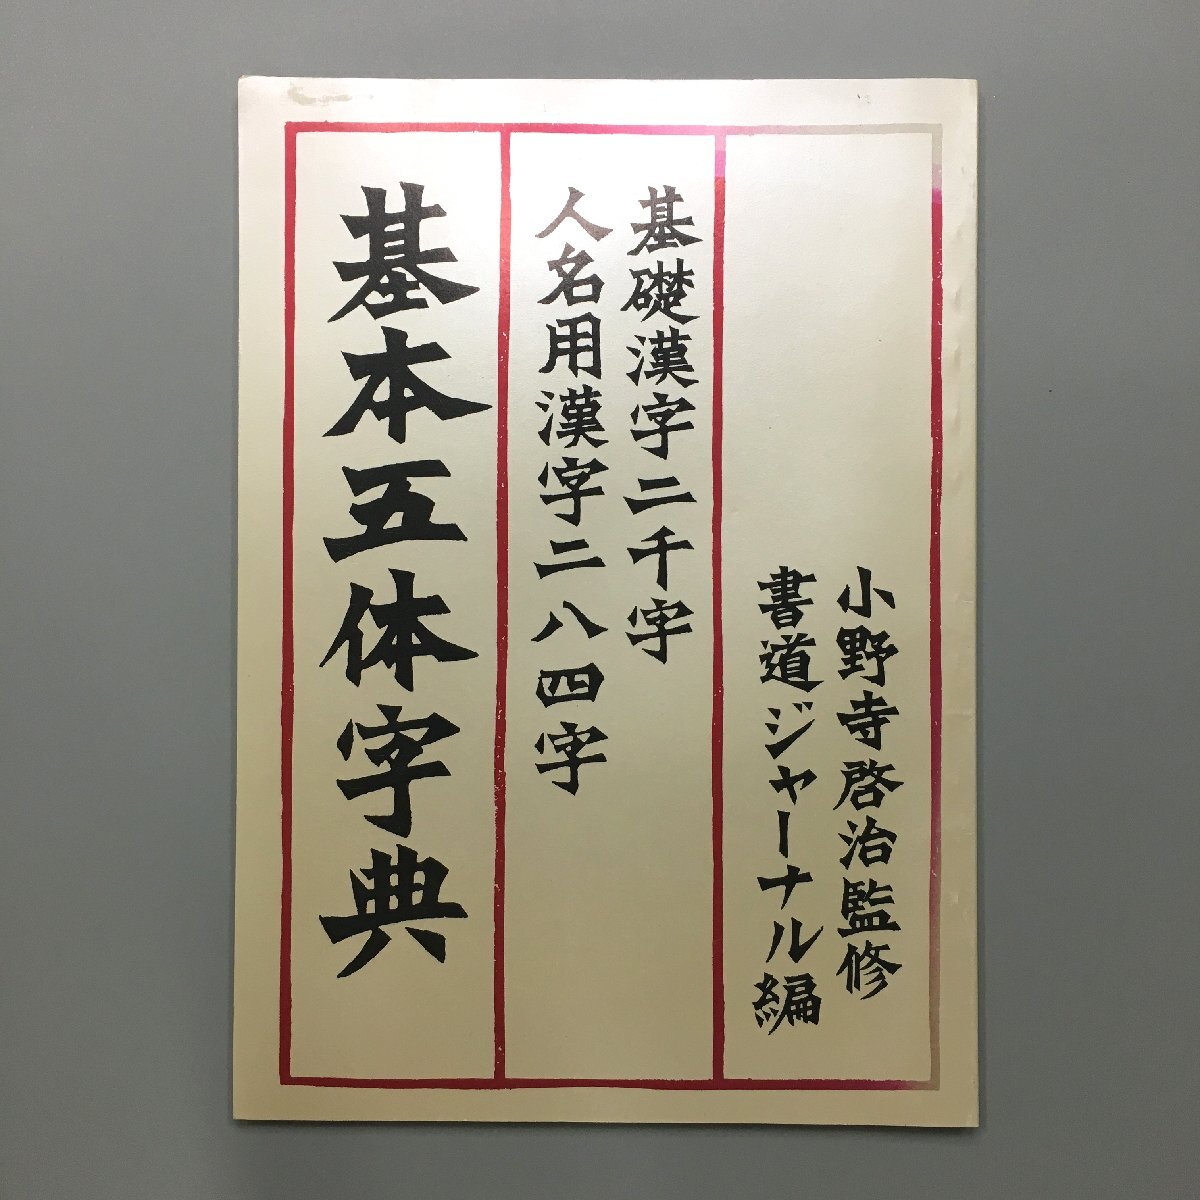 小野寺啓治監修
書道ジャーナル編
基礎漢字二千字
人名用漢字二八四字
基本五体字典